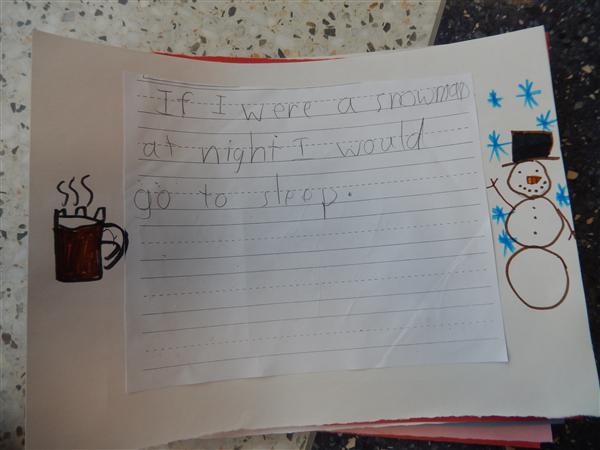 If I were a snowman
at night I would
go to sleep.